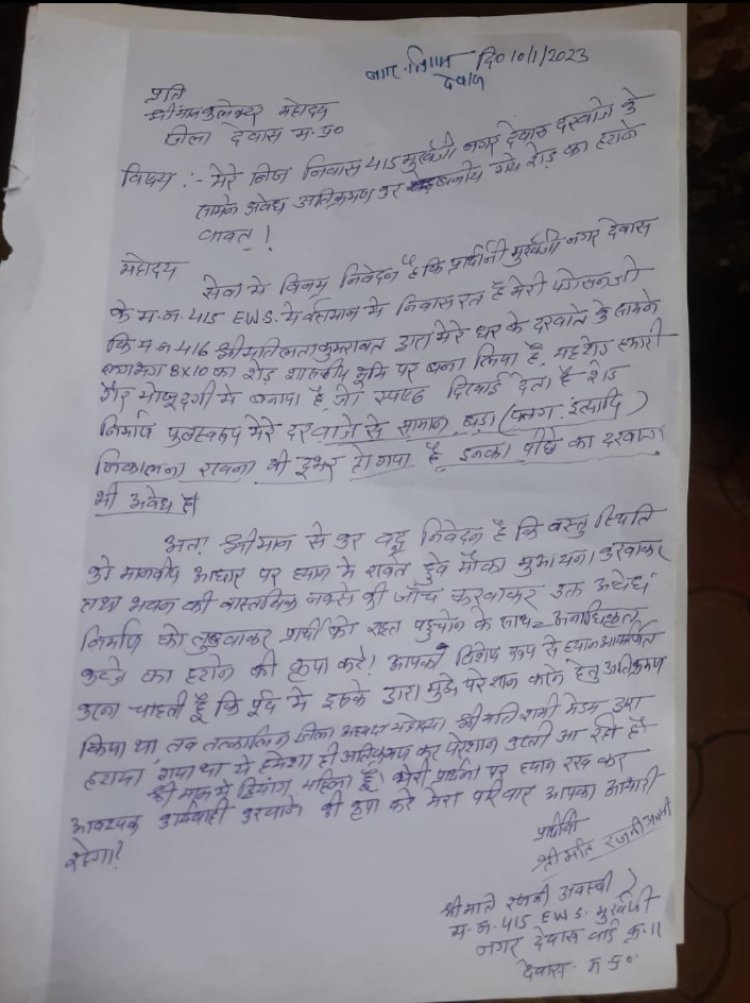 नगर निगम देवास
दि० 10/1/2023
प्रति
श्रीमान कलेक्टर महोदय
जिला देवास म.प्र०
विषय :- मेरे निज निवास 415 मुखर्जी नगर देवास दरवाजे के
सामने अवैध अतिक्रमण कर बनाये गये शेड का हटाने
बाबत् !
महोदय
सेवा मे विनम्र निवेदन है कि प्रार्थीनी मुखर्जी नगर देवास
के म.न. 415 EWS. मे वर्तमान मे निवासरत है मेरी पडोसन जो
कि म न 416 श्रीमति लता कुमरावत द्वारा मेरे घर के दरवाजे के सामने
लगभग 8x10 का शेड शासकीय भूमि पर बना लिया है, यह शेड हमारी
गैर मौजूदगी मे बनाया है, जो स्पष्ट दिखाई देता है शेड
निर्माण फलस्वरूप मेरे दरवाजे से सामान बड़ा (पलंग इत्यादि)
निकालना रखना भी दूभर हो गया है, इनका पीछे का दरवाजा
भी अवैध है।
अतः श्रीमान से कर बद्ध निवेदन है कि वस्तु स्थिति
को मानवीय आधार पर ध्यान मे रखते हुवे मौका मुआयना करवाकर
तथा भवन की वास्तविक नक्से की जाँच करवाकर उक्त अवैध
निर्माण को तुडवाकर प्रार्थी को राहत पहुचाने के साथ अनाधिकृत
कब्जे का हटाने की कृपा करे! आपको विशेष रूप से ध्यान आकर्षित
करना चाहती हूँ कि पूर्व मे इनके द्वारा मुझे परेशान करने हेतु अतिक्रमण
किया था, तब तत्कालिन जिला अध्यक्ष महोदया श्रीमति शमी मेडम द्वारा
हटाया गया था ये हमेशा ही अतिक्रमण कर परेशान करती आ रही है
श्री मान मे दिव्यांग महिला हूँ मेरी प्रार्थना पर ध्यान रख कर
आवश्यक कार्यवाही करवाने की कृपा करे मेरा परिवार आपका आभारी
रहेगा?
प्रार्थीनी
श्रीमति रजनी अवस्थी
श्रीमति रजनी अवस्थी
म.न. 415 EWS. मुखर्जी
नगर देवास वार्ड क्र. 11
देवास म प्र०